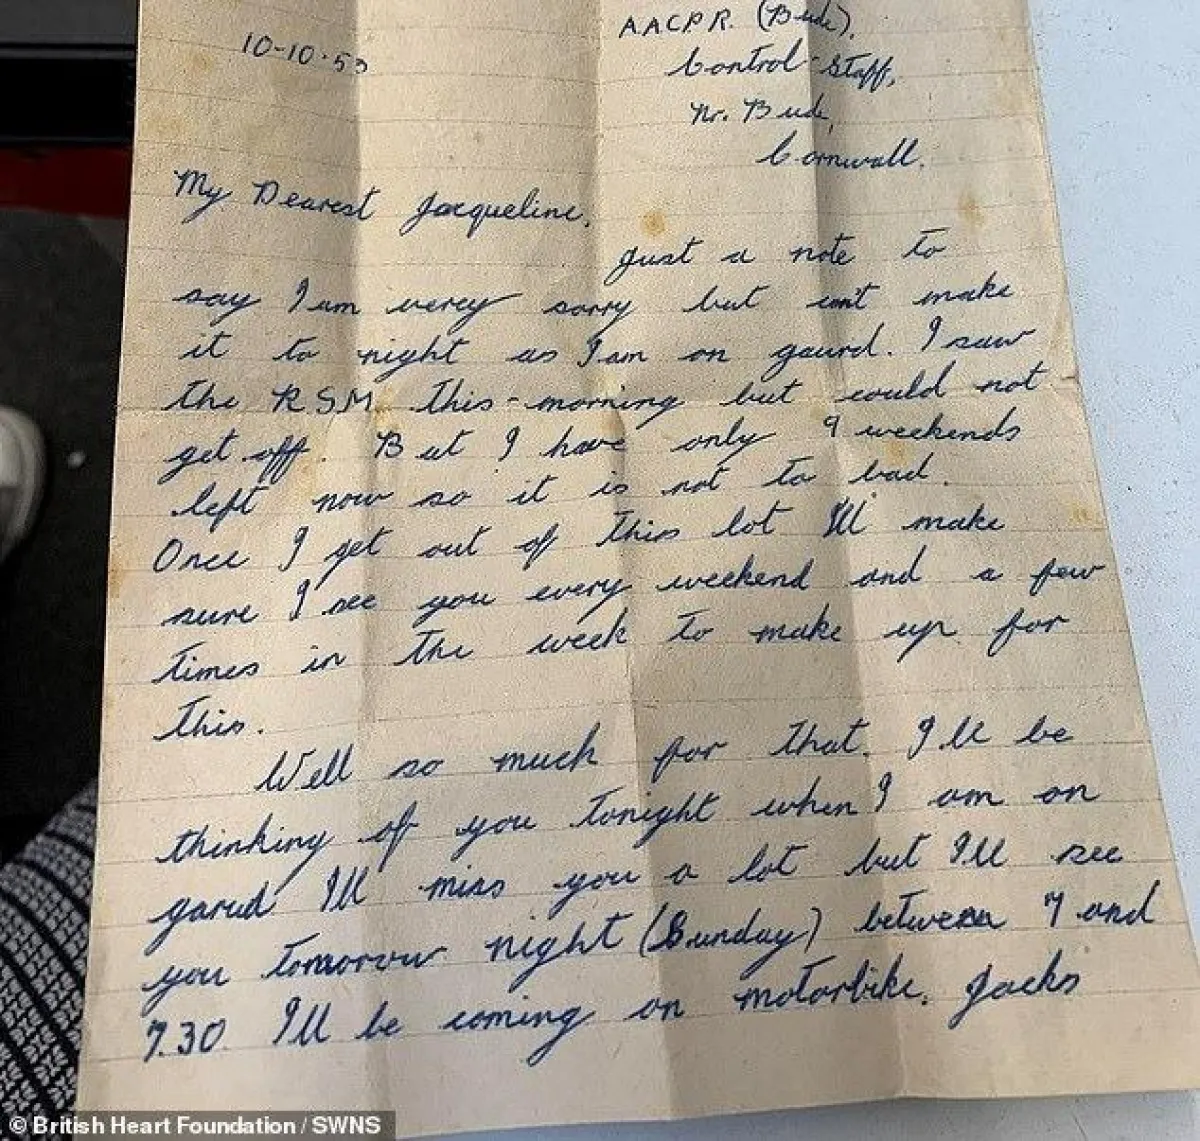 10-10.53
A.A.C.P.R. (Bude).
Control-Staff,
Nr. Bude,
Cornwall.
My Dearest Jacqueline,
Just a note to
say I am verey sorry but can't make
it to night as I am on gaurd. I saw
the RSM this-morning but could not
get off. But I have only 9 weekends
left now so it is not to bad.
Once I get out of this lot I'll make
sure I see you every weekend and a few
times in the week to make up for
this.
Well so much for that. I'll be
thinking of you tonight when I am on
garud I'll miss you a lot but I'll see
you tomorrow night (Sunday) between 7 and
7.30 I'll be coming on motorbike. Jacks
© British Heart Foundation / SWNS